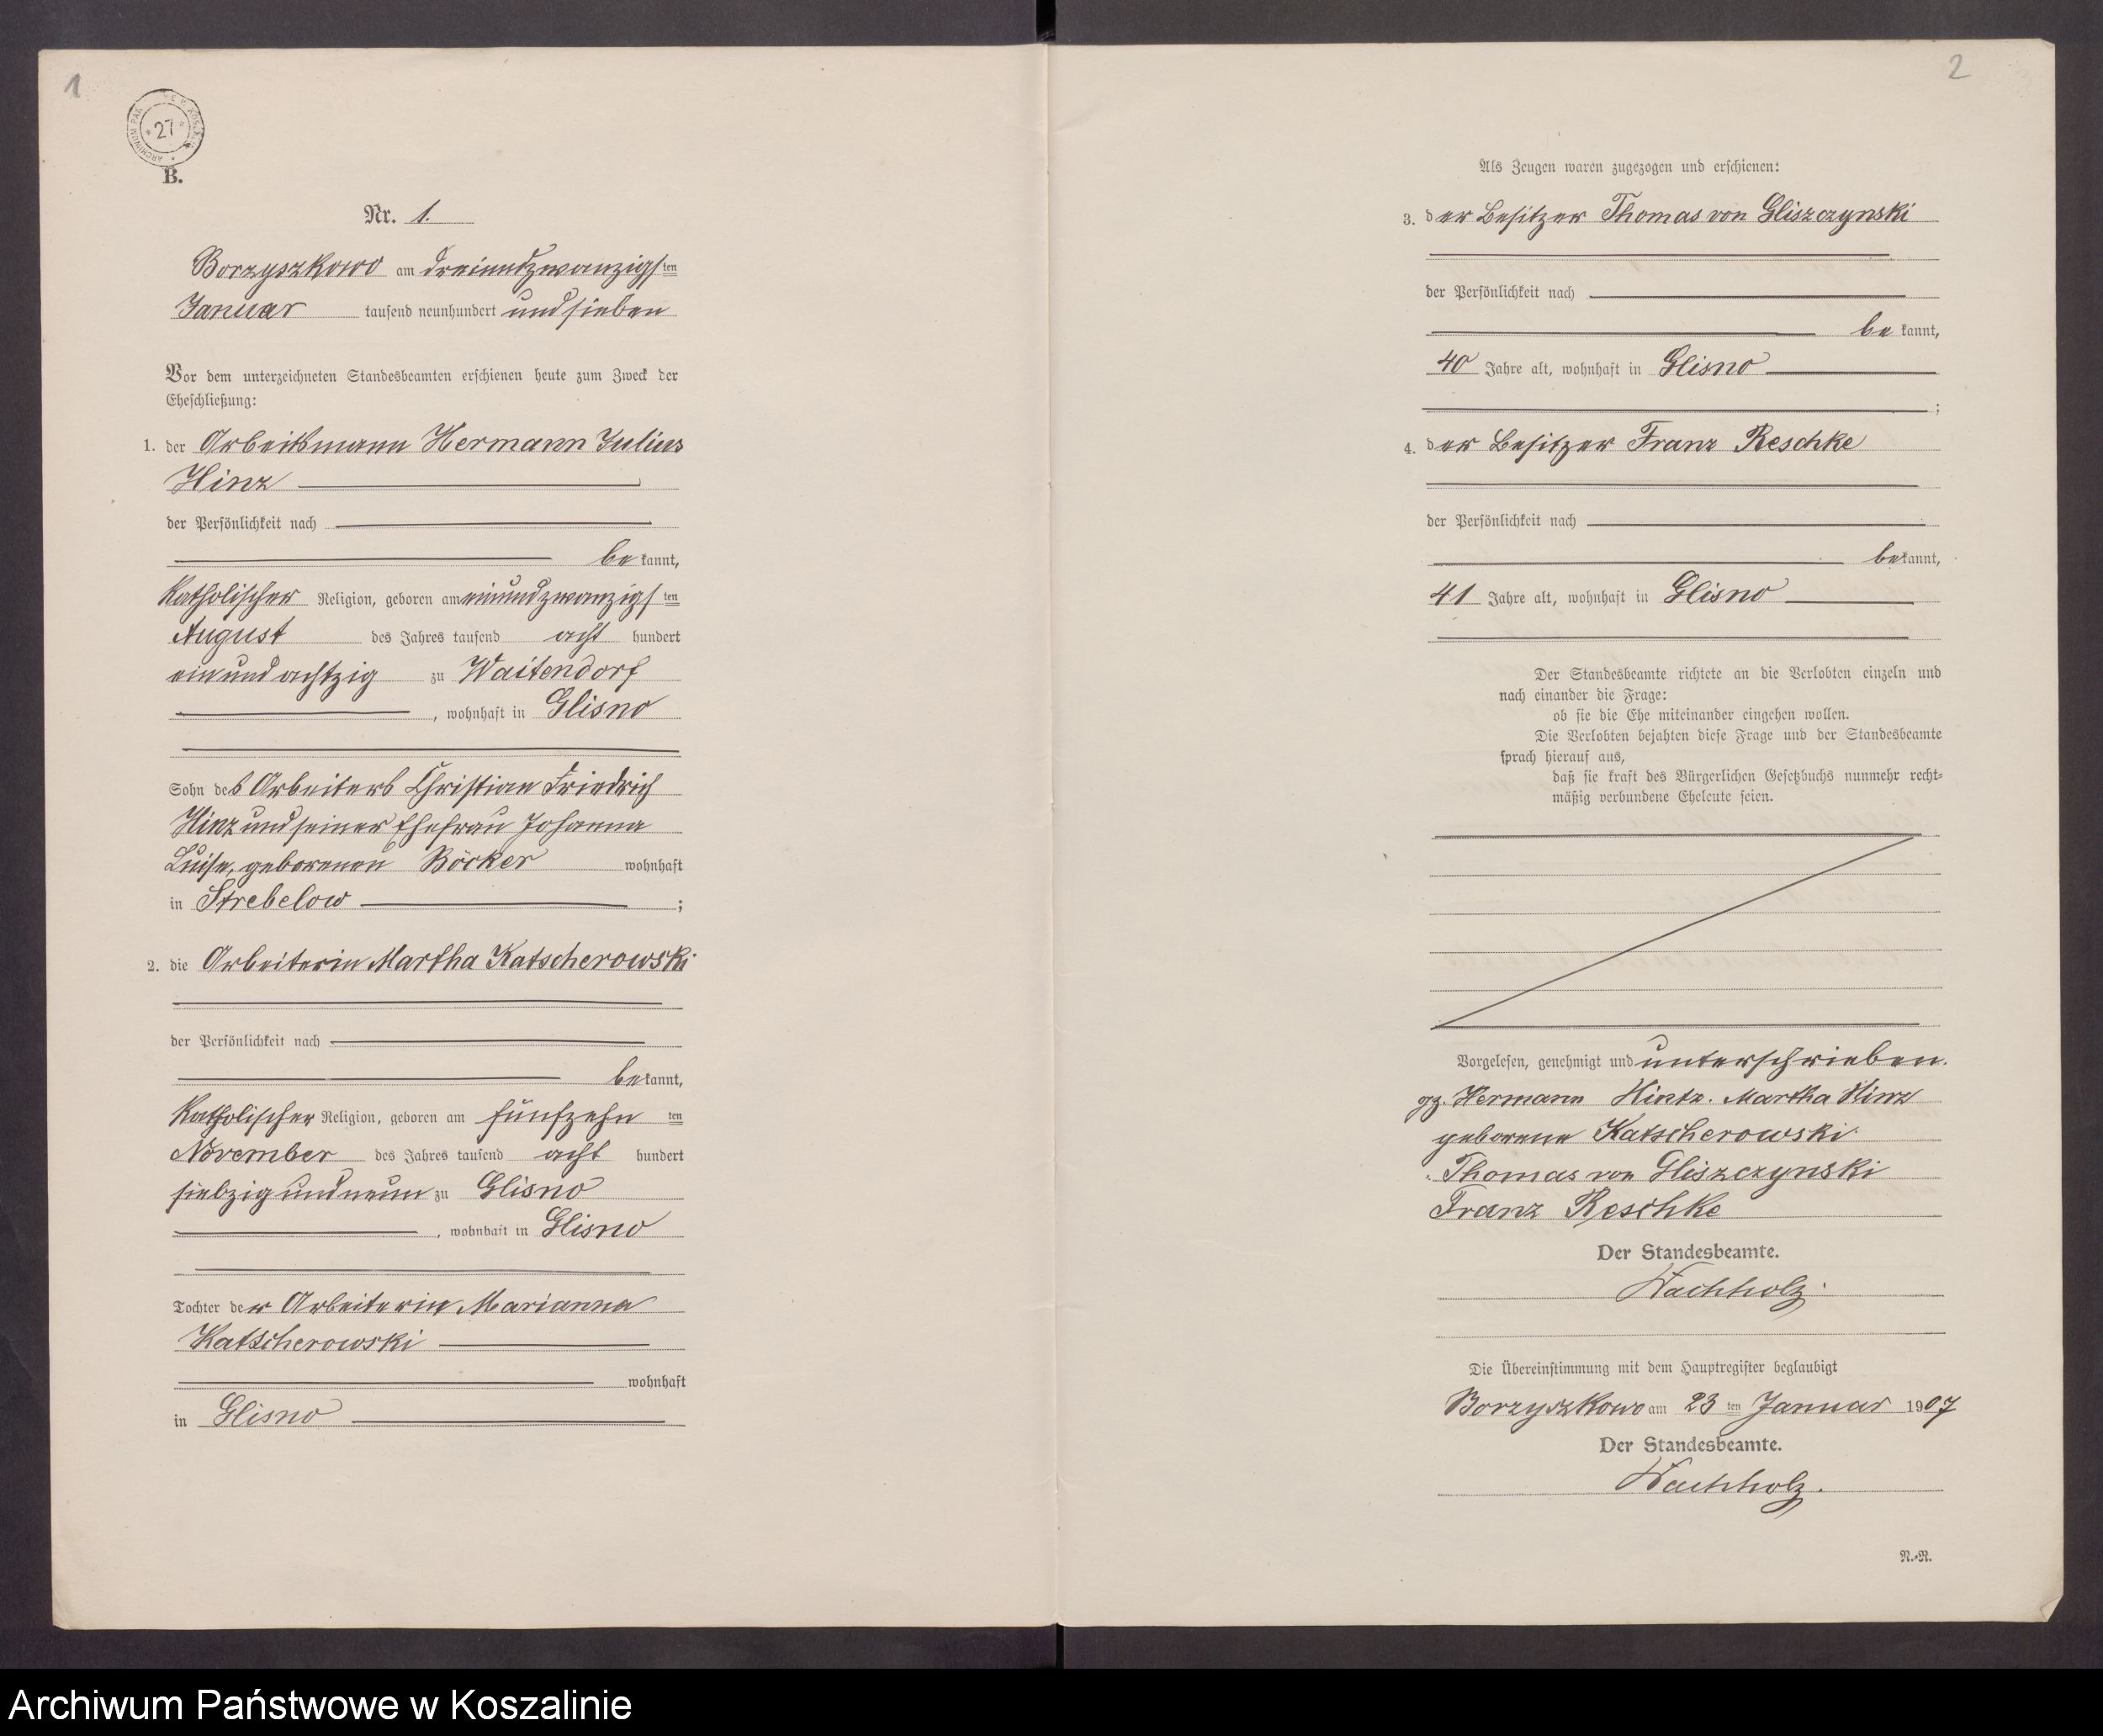 1
ARCHIWUM PAŃ
27
B.
Nr. 1.
Borzyszkowo am dreiundzwanzigsten
Januar tausend neunhundert und sieben
Vor dem unterzeichneten Standesbeamten erschienen heute zum Zweck der
Eheschließung:
1. der Arbeitsmann Hermann Julius
Hinz
der Persönlichkeit nach
bekannt,
Katholischer Religion, geboren am einundzwanzigsten
August des Jahres tausend acht hundert
einundachtzig zu Waitendorf
, wohnhaft in Glisno
Sohn des Arbeiters Christian Friedrich
Hinz und seiner Ehefrau Johanna
Luise, geborenen Böcker wohnhaft
in Strebelow ;
2. die Arbeiterin Martha Katscherowski
der Persönlichkeit nach
bekannt,
Katholischer Religion, geboren am fünfzehnten
November des Jahres tausend acht hundert
siebzig und neun zu Glisno
, wohnhaft in Glisno
Tochter der Arbeiterin Marianna
Katscherowski
wohnhaft
in Glisno
2
Als Zeugen waren zugezogen und erschienen:
3. der Besitzer Thomas von Gliszczynski
der Persönlichkeit nach
bekannt,
40 Jahre alt, wohnhaft in Glisno
;
4. der Besitzer Franz Reschke
der Persönlichkeit nach
bekannt,
41 Jahre alt, wohnhaft in Glisno
Der Standesbeamte richtete an die Verlobten einzeln und
nach einander die Frage:
ob sie die Ehe miteinander eingehen wollen.
Die Verlobten bejahten diese Frage und der Standesbeamte
sprach hierauf aus,
daß sie kraft des Bürgerlichen Gesetzbuchs nunmehr recht-
mäßig verbundene Eheleute seien.
Vorgelesen, genehmigt und unterschrieben.
gz. Hermann Hintz. Martha Hinz
geborene Katscherowski
Thomas von Gliszczynski
Franz Reschke
Der Standesbeamte.
Wachholz.
Die Übereinstimmung mit dem Hauptregister beglaubigt
Borzyszkowo am 23ten Januar 1907
Der Standesbeamte.
Wachholz.
N.-N.
Archiwum Państwowe w Koszalinie